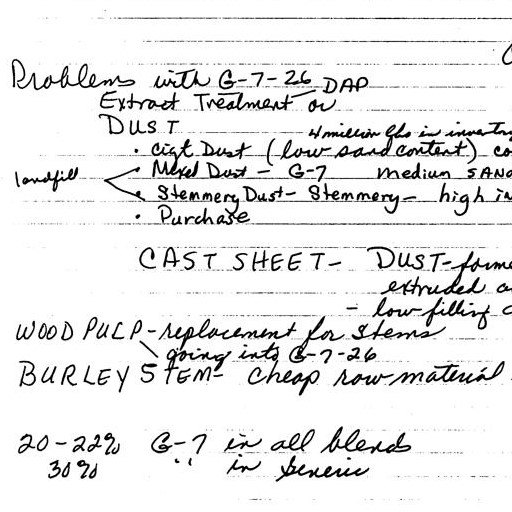 Problems with G-7-26 DAP
Extract Treatment or
DUST
4 million lbs in inventory
• cigt Dust (low sand content) co
landfill
• Mixed Dust - G-7 medium SAND
• Stemmery Dust - Stemmery - high in
• Purchase
CAST SHEET - DUST - forme
extruded a
- low filling c
WOOD PULP - replacement for stems
going into G-7-26
BURLEY STEM - cheap raw material
20-22% G-7 in all blends
30% " in Generic